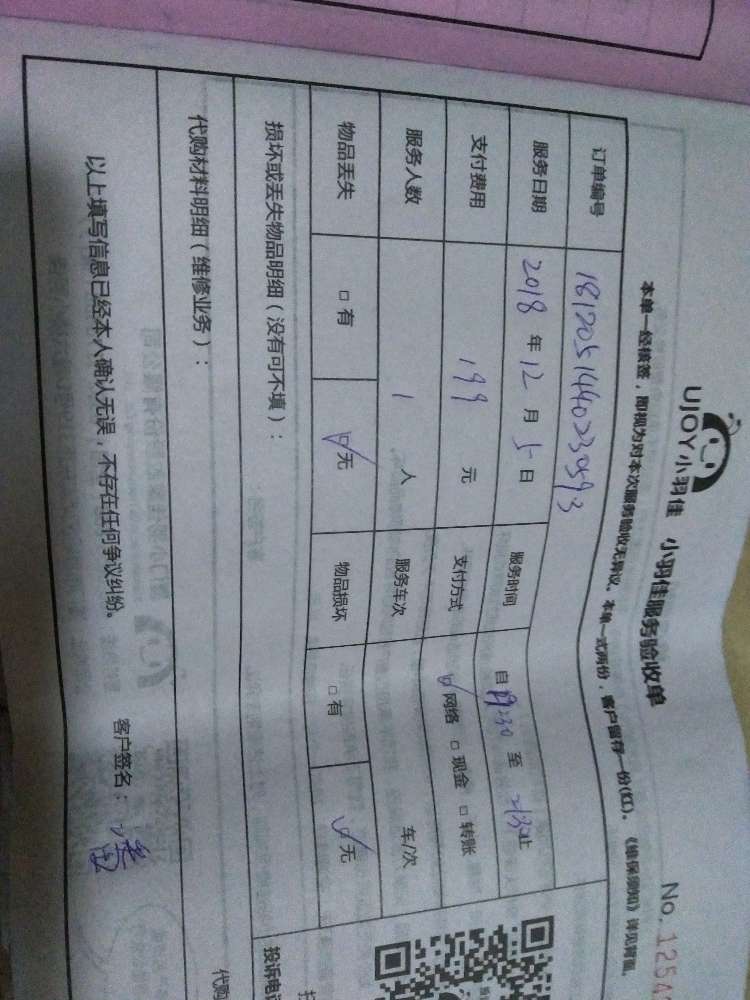 UJOY小羽佳 小羽佳服务验收单 No. 1254
本单一经核签，即视为对本次服务验收无异议。本单一式两份，客户留存一份(红)。《维保须知》详见背面。
订单编号 181205144023059 3
服务日期 2018 年 12 月 5 日 服务时间 自 19:30 至 21:30 止
支付费用 199 元 支付方式 网络 □ 现金 □ 转账
服务人数 1 人 服务车次 车/次
物品丢失 □ 有 □ 无 物品损坏 □ 有 □ 无
损坏或丢失物品明细（没有可不填）：
代购材料明细（维修业务）：
以上填写信息已经本人确认无误，不存在任何争议纠纷。 客户签名：
投诉电
代购